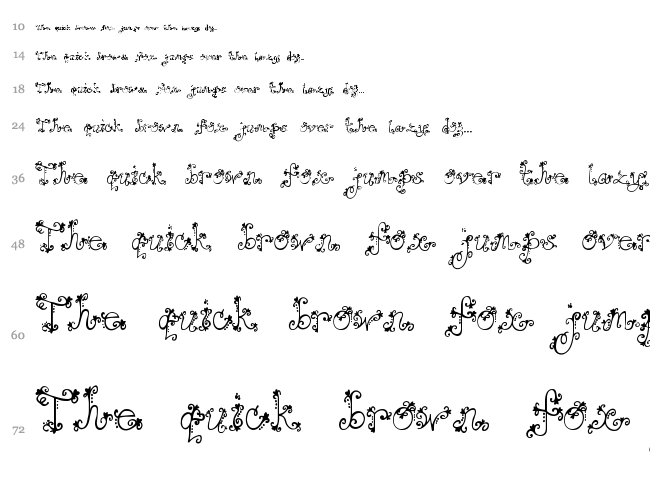 10 The quick brown fox jumps over the lazy dg...
14 The quick brown fox jumps over the lazy dg...
18 The quick brown fox jumps over the lazy dg...
24 The quick brown fox jumps over the lazy dg...
36 The quick brown fox jumps over the lazy
48 The quick brown fox jumps over
60 The quick brown fox jump
72 The quick brown fox